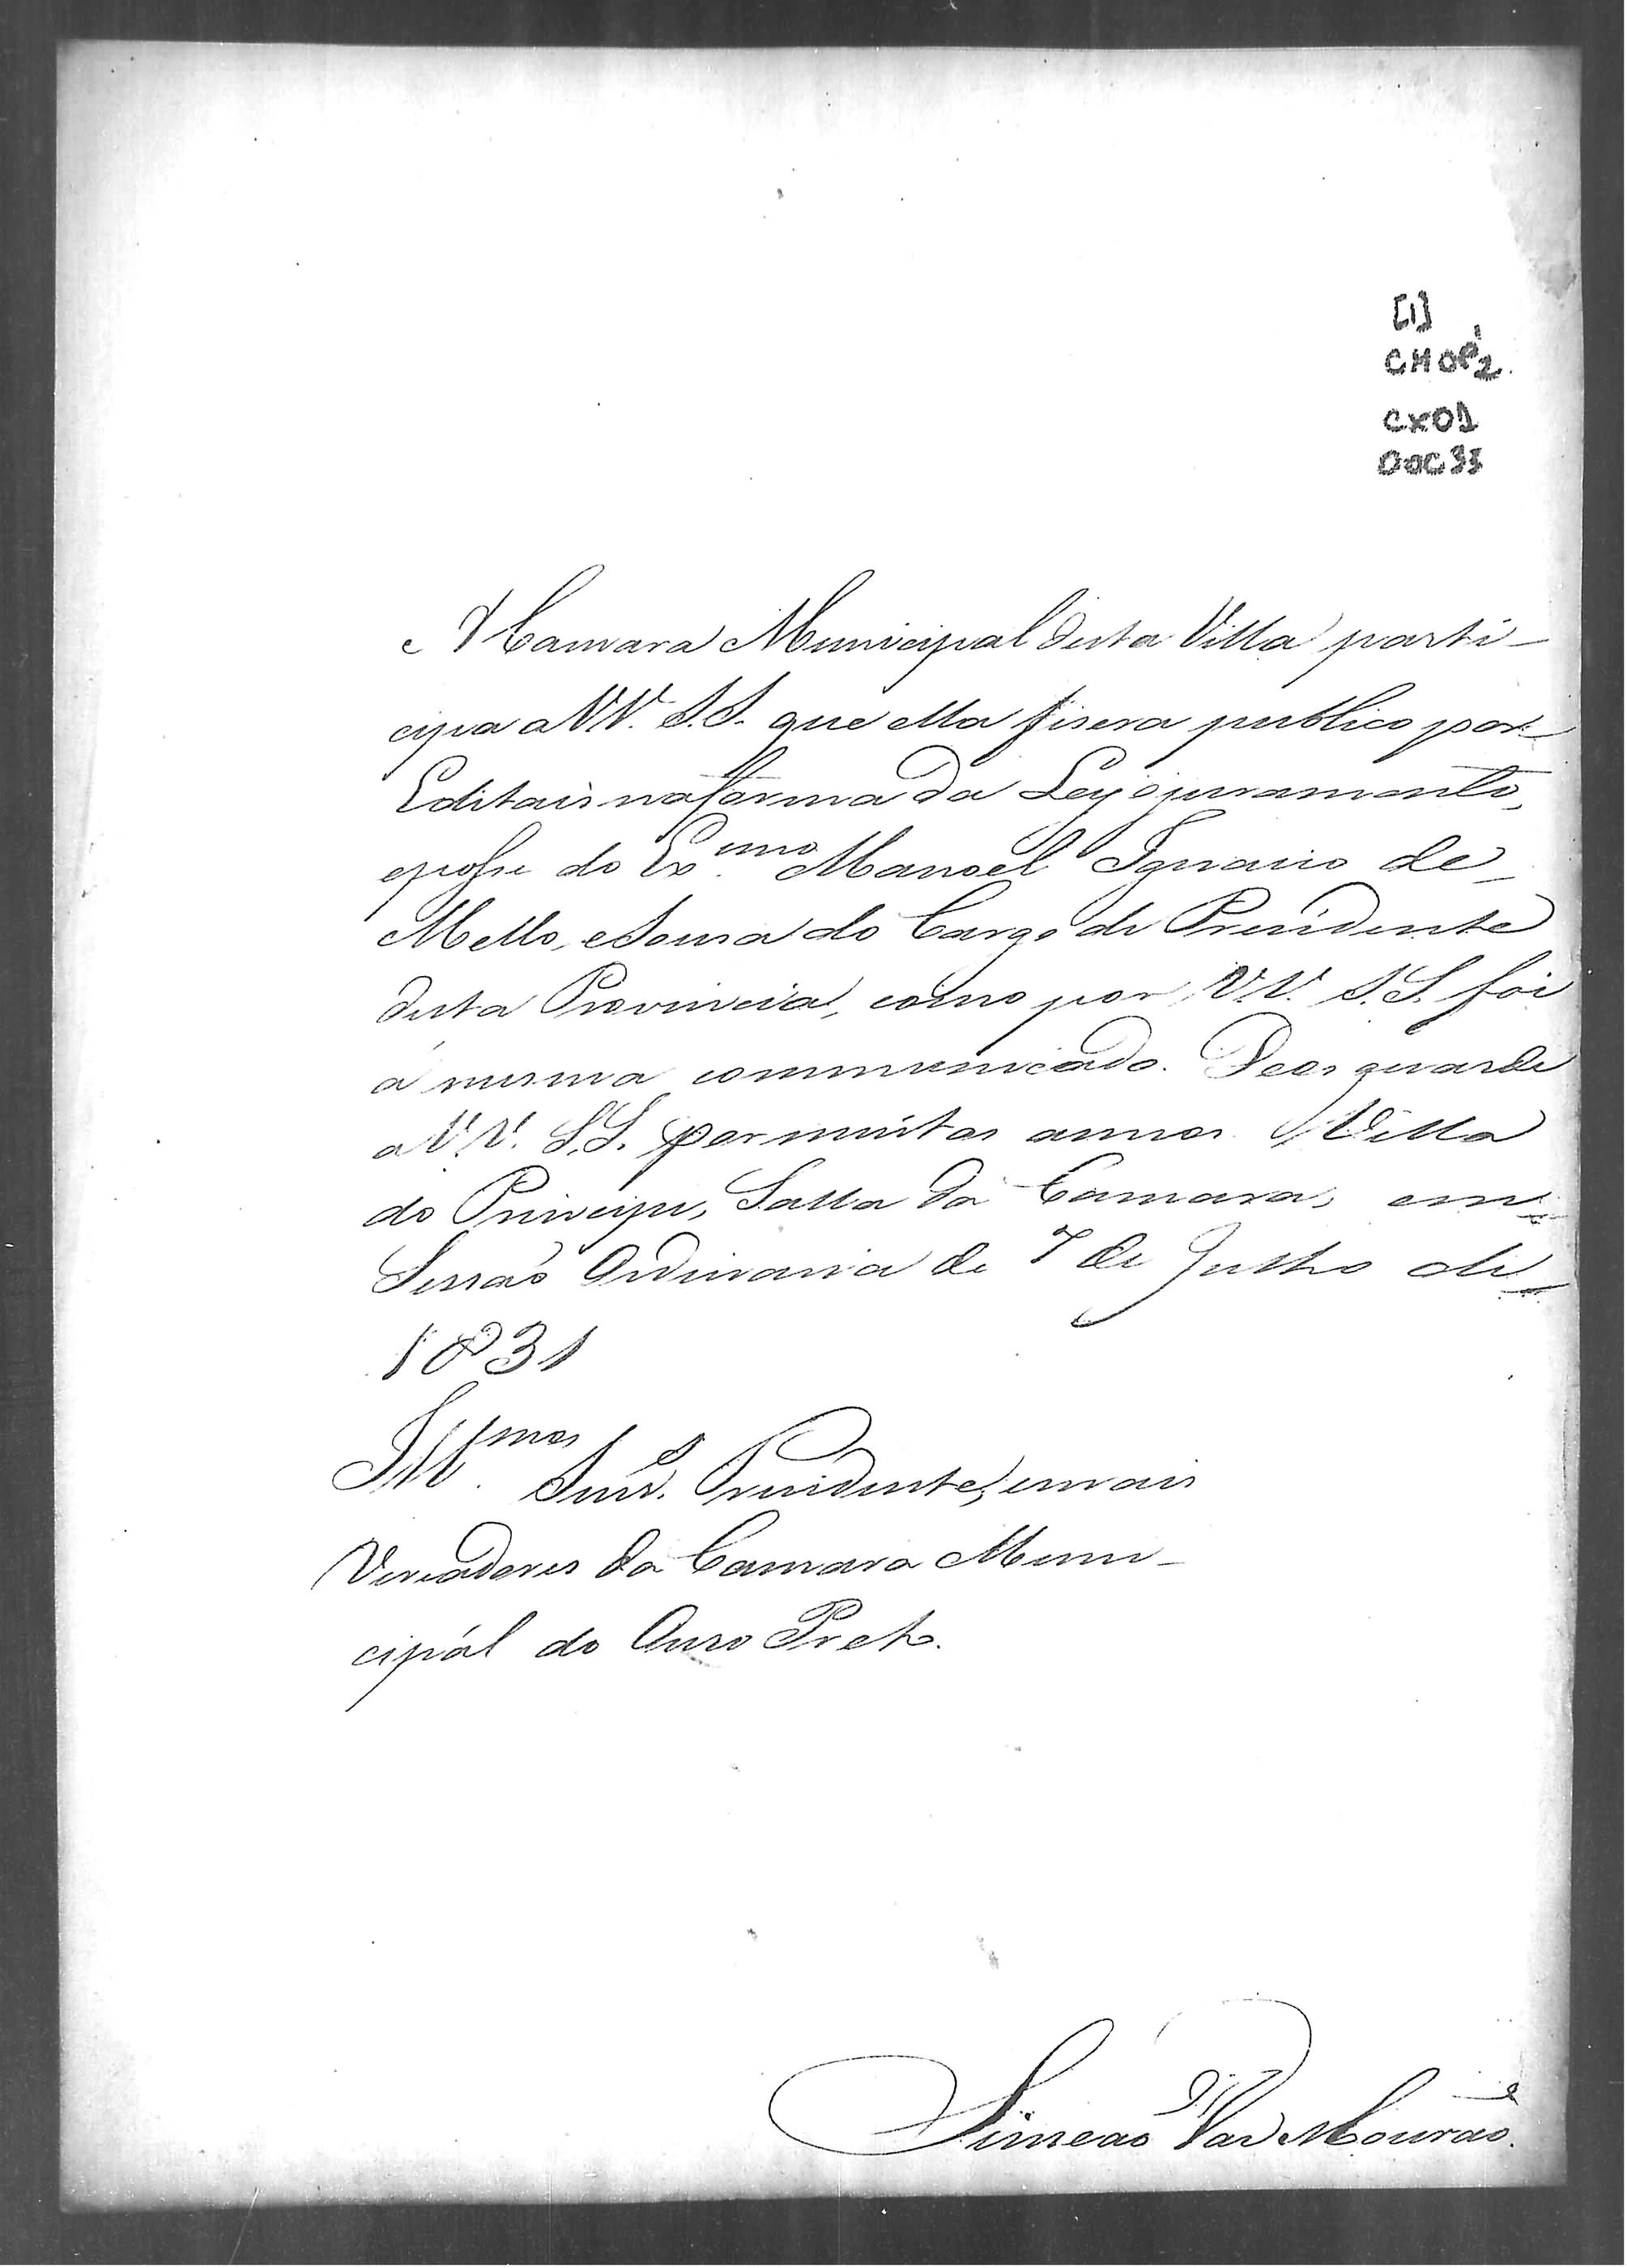 [1]
CMOP2
CX01
DOC33
A Camara Municipal desta Villa parti-
cipa a VV. S.S. que ella fisera publico por
Editais na forma da Ley o juramento,
e posse do Ex.mo Manoel Ignacio de
Mello, e Sousa do Cargo de Presidente
desta Provincia, como por V.V. S.S. foi
á mesma communicado. Deos guarde
a V.V. S.S. por muitos annos. Villa
do Principe, Salla da Camara, em
Sessaõ Ordinaria de 7 de Julho de
1831
Ill.mos Snrs. Presidente, e mais
Vereadores da Camara Muni-
cipál do Ouro Preto.
Simeaõ Vas Mouraõ.